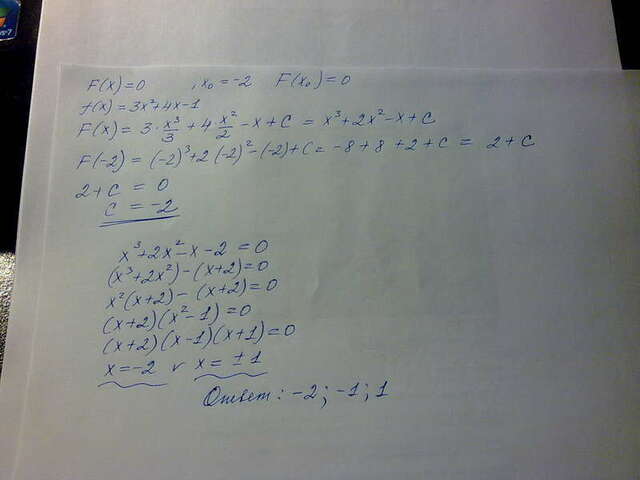 F(x)=0 , x₀ = -2 F(x₀) = 0
f(x) = 3x²+4x-1
F(x) = 3·x³/3 + 4·x²/2 - x + C = x³+2x²-x+C
F(-2) = (-2)³+2(-2)²-(-2)+C = -8+8+2+C = 2+C
2+C = 0
C = -2
x³+2x²-x-2 = 0
(x³+2x²)-(x+2)=0
x²(x+2)-(x+2)=0
(x+2)(x²-1)=0
(x+2)(x-1)(x+1)=0
x=-2 v x=±1
Ответ: -2; -1; 1